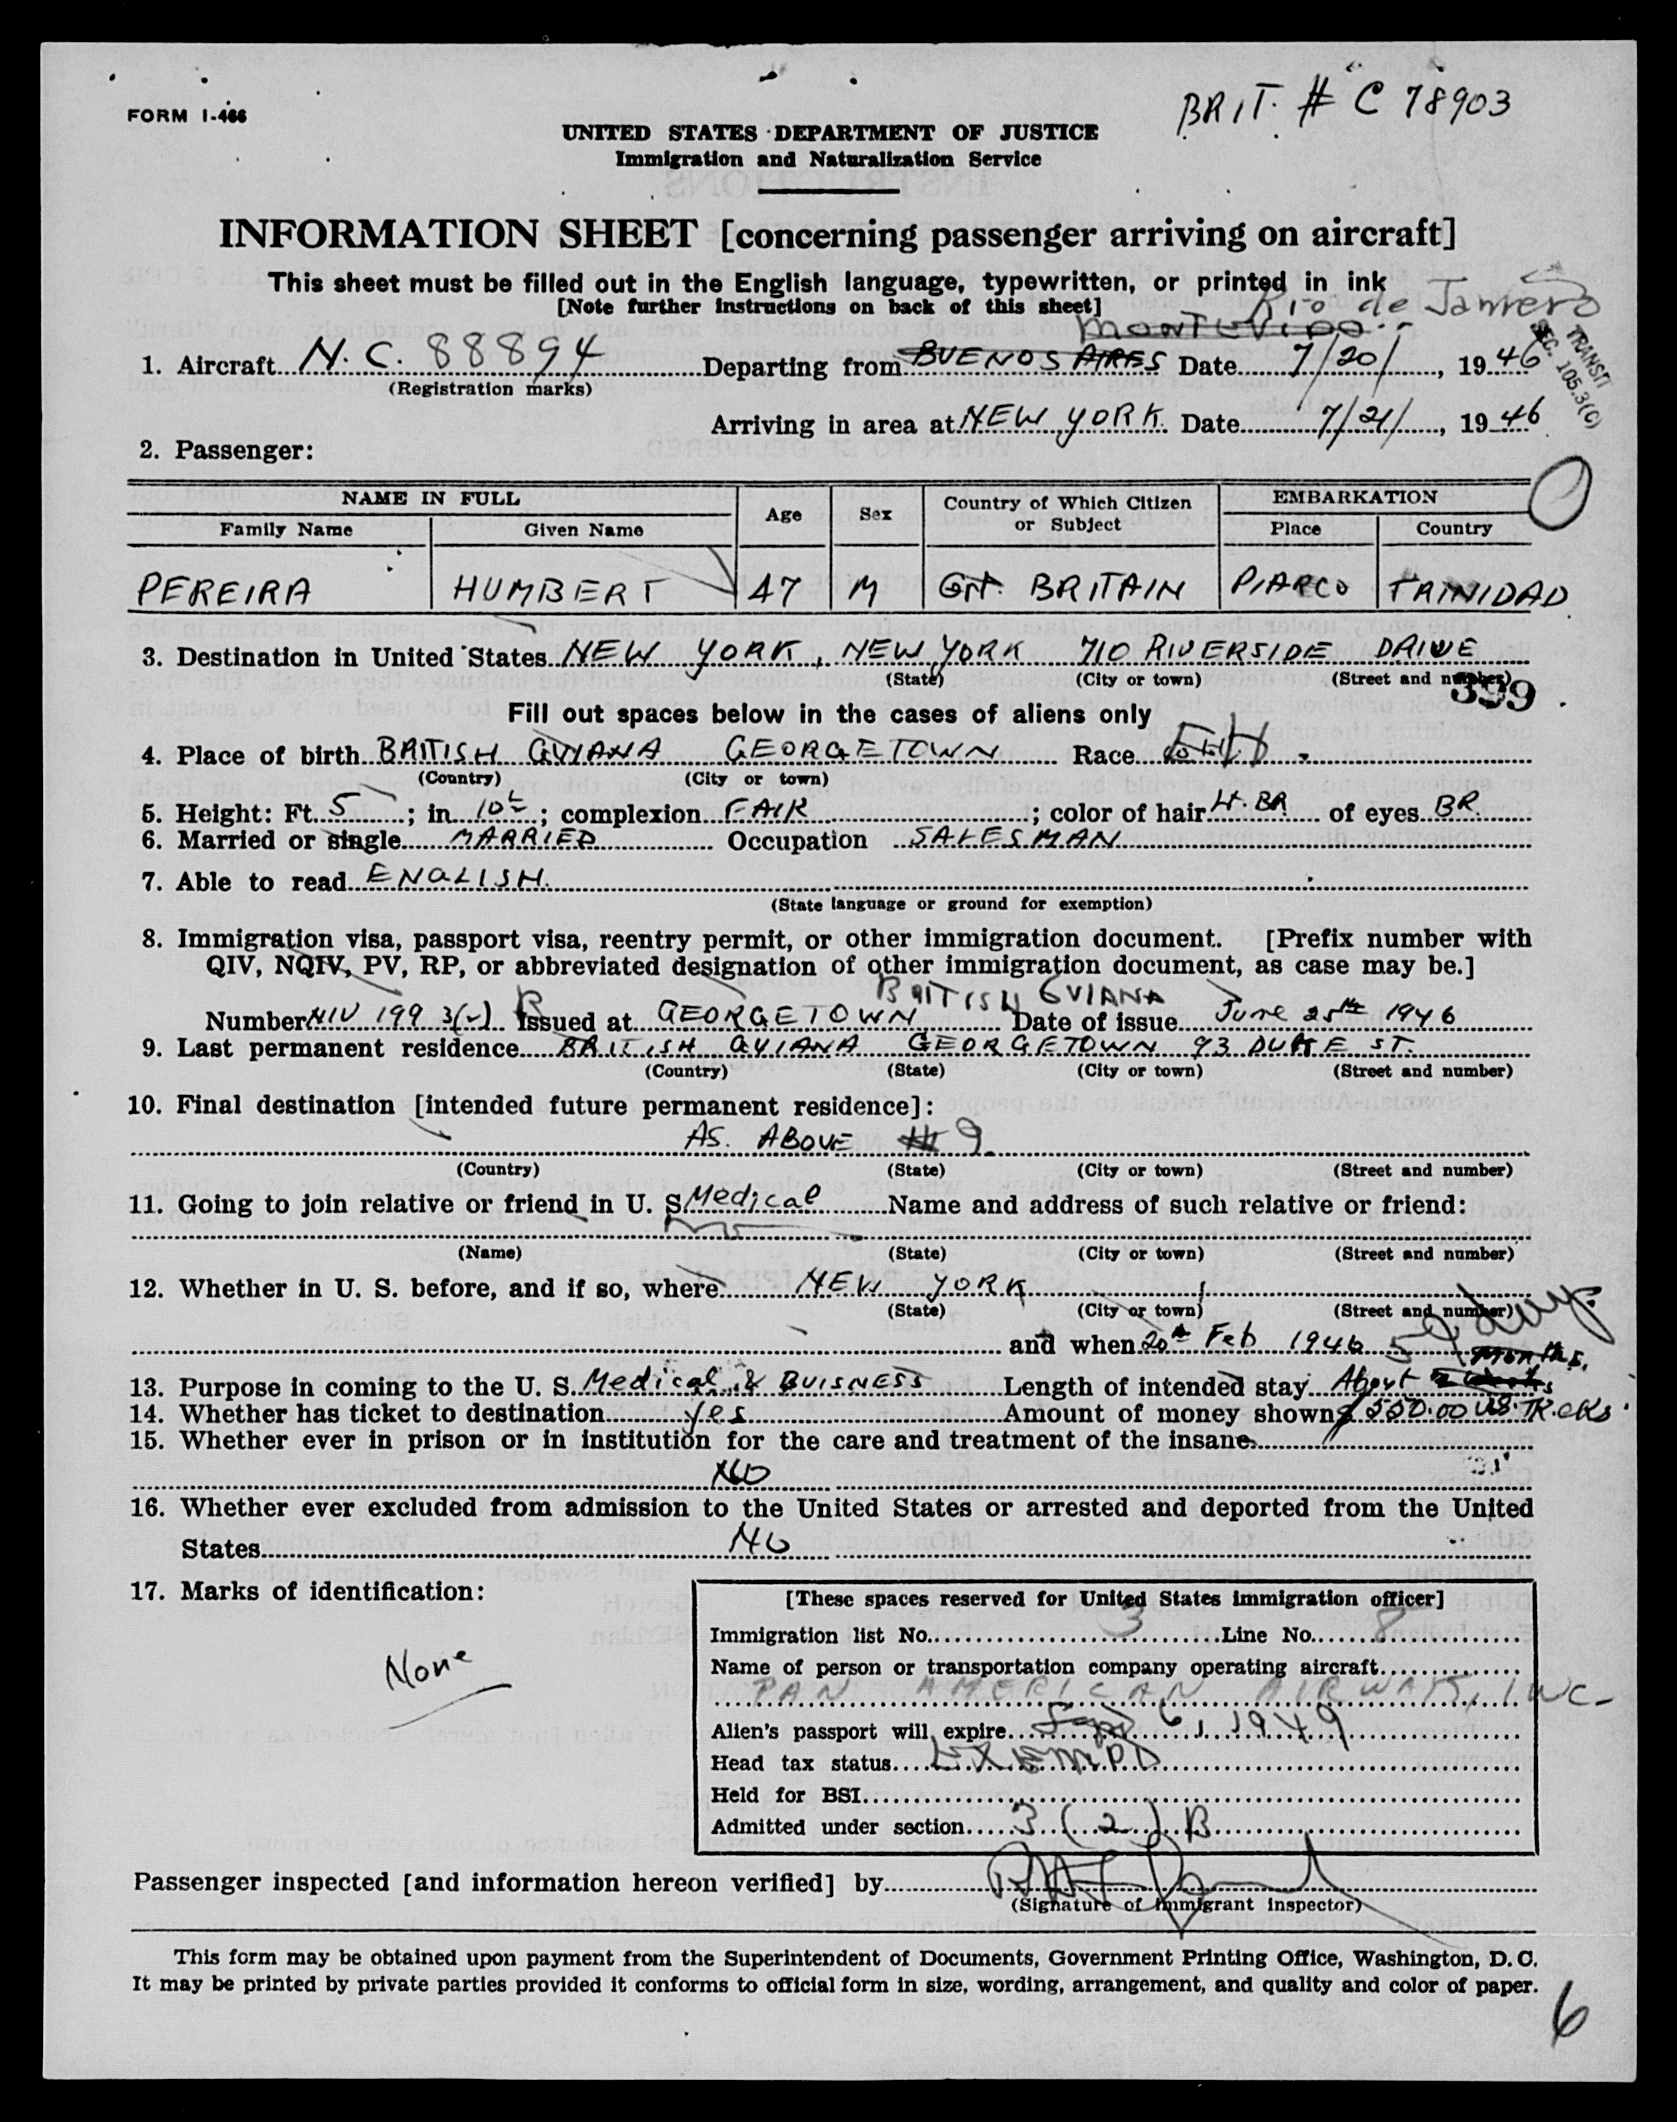 BRIT. # C 78903
FORM I-466
UNITED STATES DEPARTMENT OF JUSTICE
Immigration and Naturalization Service
INFORMATION SHEET [concerning passenger arriving on aircraft]
This sheet must be filled out in the English language, typewritten, or printed in ink
[Note further instructions on back of this sheet]
Rio de Janiero
MONTEVIDO
1. Aircraft N. C. 88894 Departing from BUENOS AIRES Date 7/20/, 1946
(Registration marks)
TRANSIT
SEC. 105.3(C)
Arriving in area at NEW YORK. Date 7/21/, 1946
2. Passenger:
NAME IN FULL Age Sex Country of Which Citizen or Subject EMBARKATION
Family Name Given Name Place Country
PEREIRA HUMBERT 47 M GT. BRITAIN PIARCO TRINIDAD
3. Destination in United States NEW YORK, NEW YORK 710 RIVERSIDE DRIVE
(State) (City or town) (Street and number)
399
Fill out spaces below in the cases of aliens only
4. Place of birth BRITISH GUIANA GEORGETOWN Race
(Country) (City or town)
5. Height: Ft. 5; in. 10; complexion FAIR; color of hair Lt. BR of eyes BR.
6. Married or single MARRIED Occupation SALESMAN
7. Able to read ENGLISH.
(State language or ground for exemption)
8. Immigration visa, passport visa, reentry permit, or other immigration document. [Prefix number with
QIV, NQIV, PV, RP, or abbreviated designation of other immigration document, as case may be.]
BRITISH GUIANA
Number NIV 199 3(2) B Issued at GEORGETOWN Date of issue June 25th 1946
9. Last permanent residence BRITISH GUIANA GEORGETOWN 93 DUKE ST.
(Country) (State) (City or town) (Street and number)
10. Final destination [intended future permanent residence]:
AS. ABOVE # 9.
(Country) (State) (City or town) (Street and number)
11. Going to join relative or friend in U. S. Medical Name and address of such relative or friend:
(Name) (State) (City or town) (Street and number)
12. Whether in U. S. before, and if so, where NEW YORK
(State) (City or town) (Street and number)
and when 20th Feb 1946
13. Purpose in coming to the U. S. Medical & BUISNESS Length of intended stay About
14. Whether has ticket to destination yes Amount of money shown $550.00 US. TR.cks
15. Whether ever in prison or in institution for the care and treatment of the insane
NO
16. Whether ever excluded from admission to the United States or arrested and deported from the United
States NO
17. Marks of identification:
None
[These spaces reserved for United States immigration officer]
Immigration list No. 3 Line No. 8
Name of person or transportation company operating aircraft
PAN AMERICAN AIRWAYS, INC-
Alien's passport will expire Sept 6, 1949
Head tax status
Held for BSI
Admitted under section 3 (2) B
Passenger inspected [and information hereon verified] by
(Signature of immigrant inspector)
This form may be obtained upon payment from the Superintendent of Documents, Government Printing Office, Washington, D. C.
It may be printed by private parties provided it conforms to official form in size, wording, arrangement, and quality and color of paper.
6